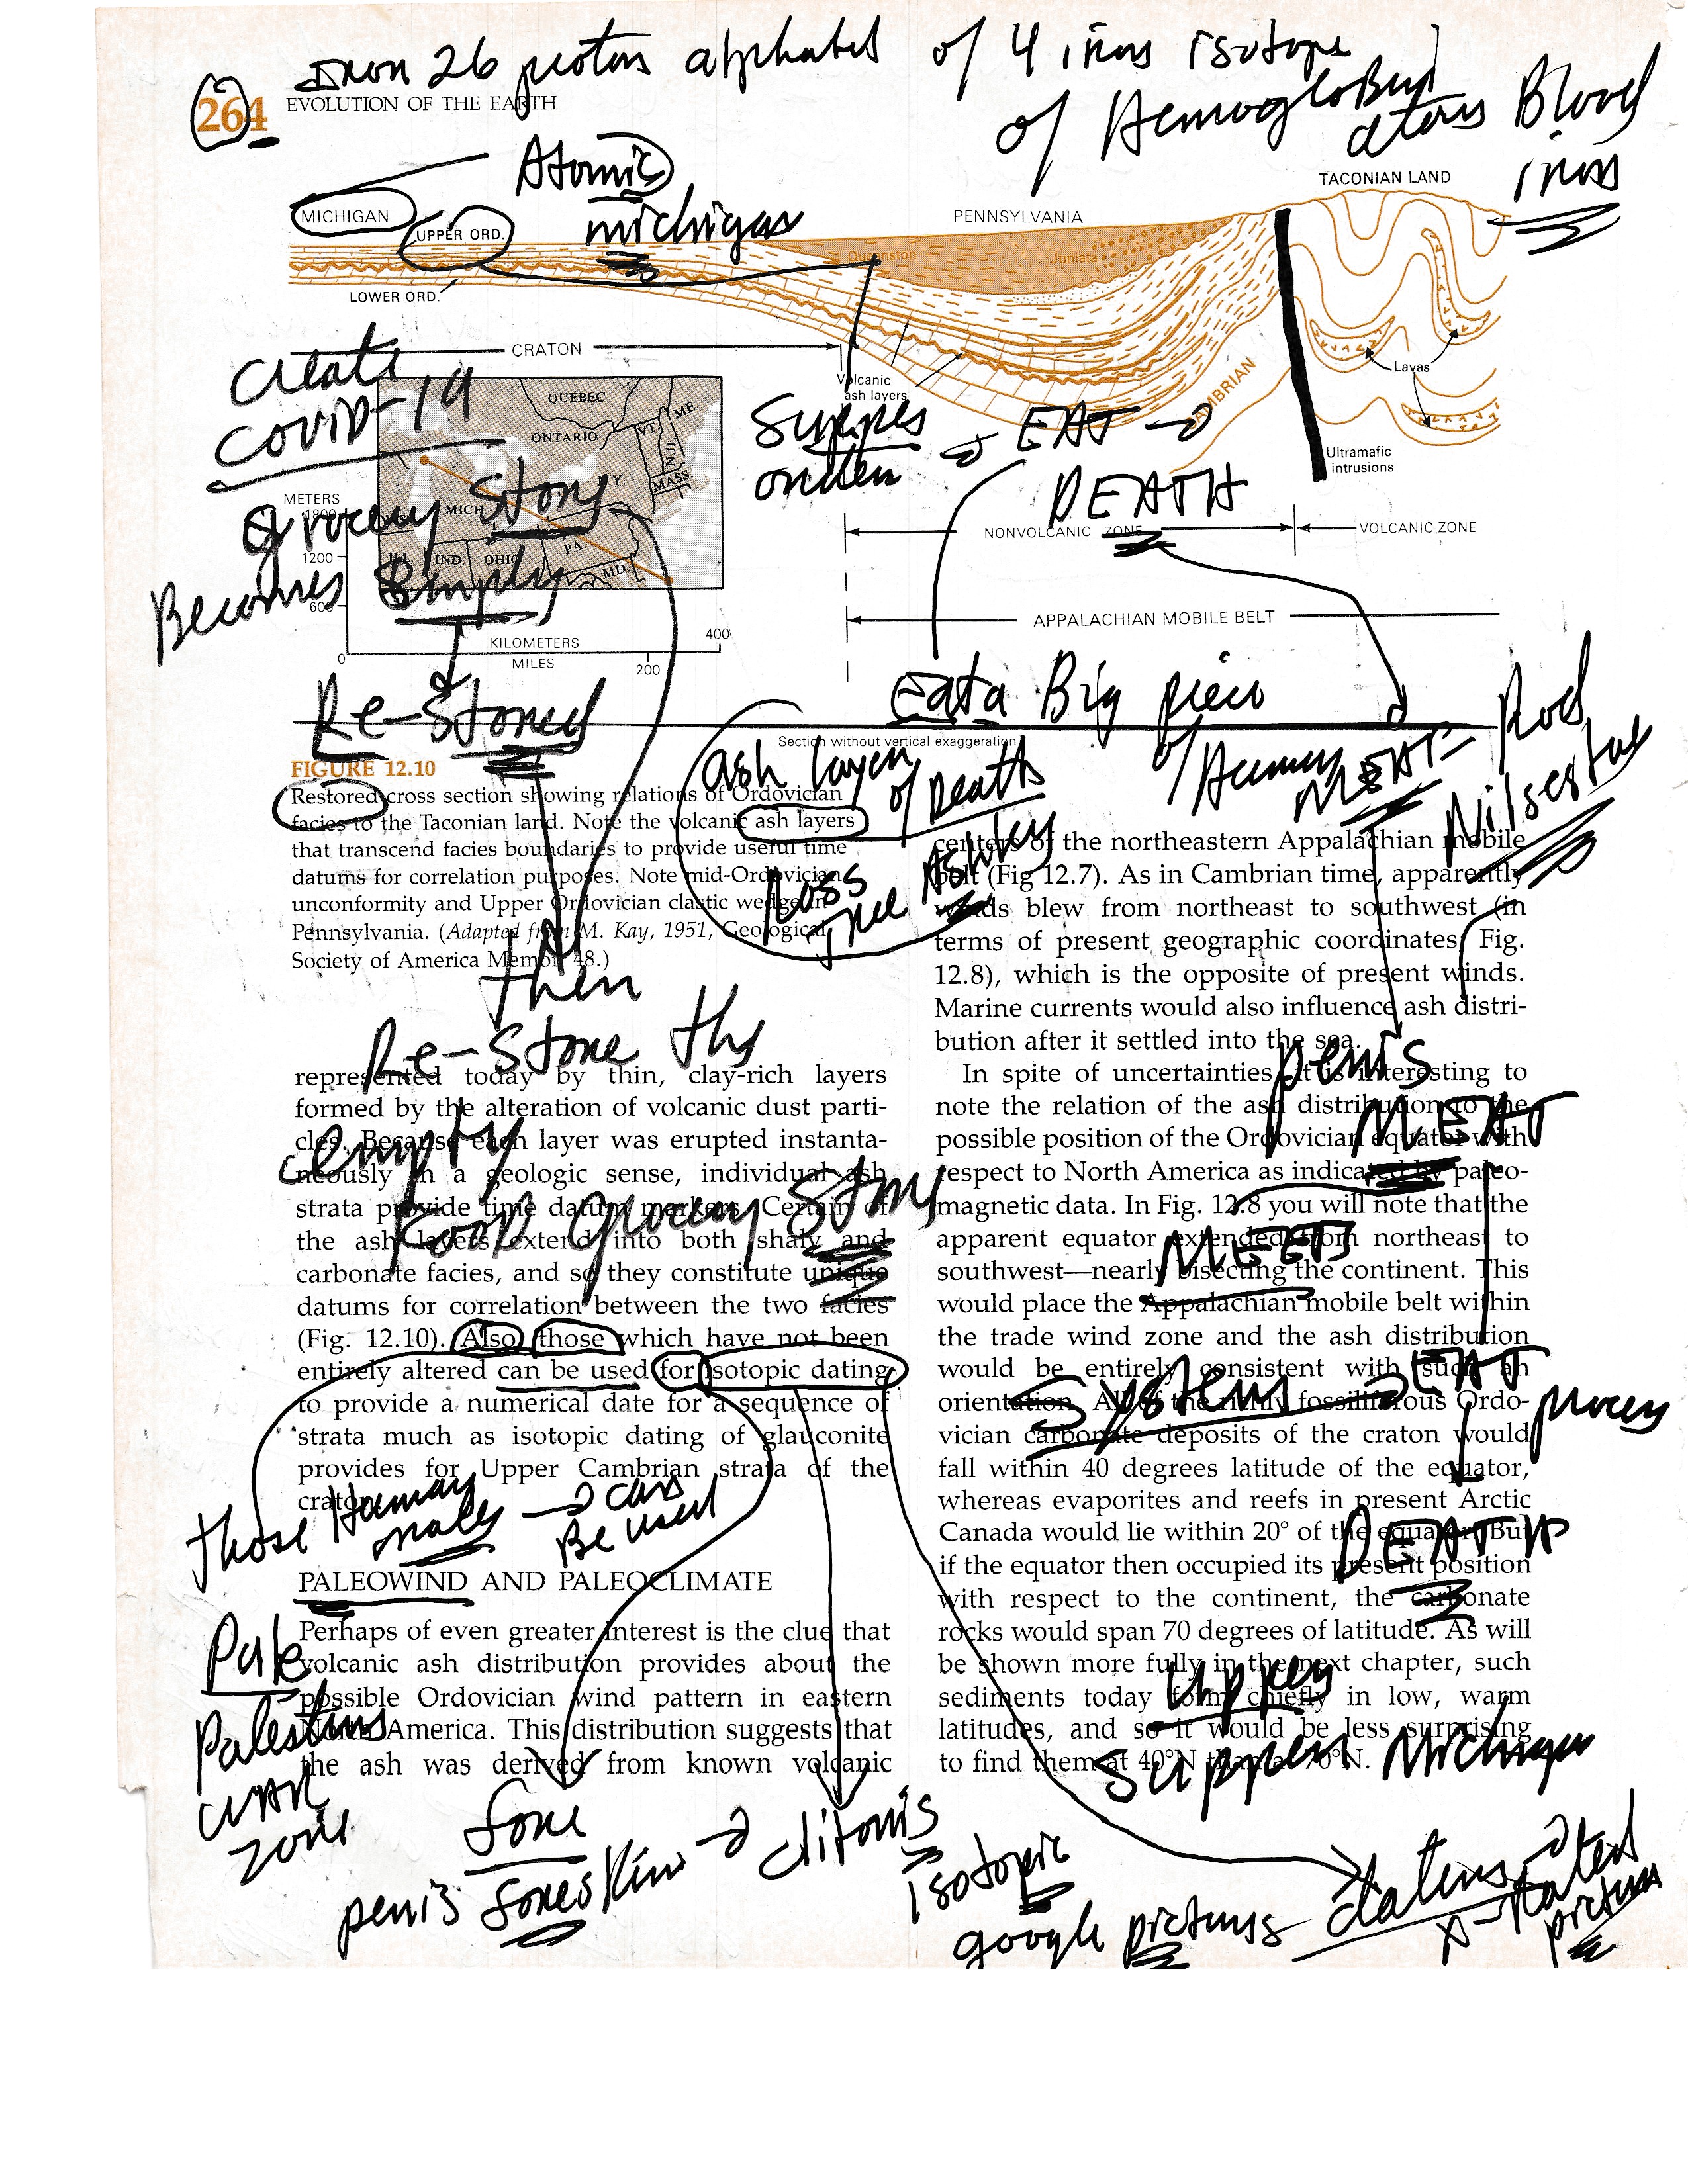 Iron 26 protons alphabet of 4 iron isotopes
of Hemoglobin
atoms Blood
iron
264 EVOLUTION OF THE EARTH
Atomic
michigan
TACONIAN LAND
MICHIGAN
UPPER ORD.
PENNSYLVANIA
Queenston
Juniata
LOWER ORD.
CRATON
Volcanic
ash layers
CAMBRIAN
Lavas
Ultramafic
intrusions
Create
COVID-19
grocery Store
Becomes Empty
QUEBEC
ONTARIO
ME.
VT.
N.H.
MASS.
N.Y.
MICH.
PA.
ILL.
IND.
OHIO
MD.
METERS
1800
1200
600
0
KILOMETERS
400
MILES
200
EAT
DEATH
NONVOLCANIC ZONE
VOLCANIC ZONE
APPALACHIAN MOBILE BELT
Re-Stored
Eat a Big piece
of Human MEAT
Rod
Section without vertical exaggeration
ash layers
of Death
Ross
Tree Ashley
FIGURE 12.10
Restored cross section showing relations of Ordovician
facies to the Taconian land. Note the volcanic ash layers
that transcend facies boundaries to provide useful time
datums for correlation purposes. Note mid-Ordovician
unconformity and Upper Ordovician clastic wedge in
Pennsylvania. (Adapted from M. Kay, 1951, Geological
Society of America Memoir 48.)
then
Re-Store the
empty
FOOD grocery Store
represented today by thin, clay-rich layers
formed by the alteration of volcanic dust parti-
cles. Because each layer was erupted instanta-
neously in a geologic sense, individual ash
strata provide time datum markers. Certain of
the ash layers extend into both shaly and
carbonate facies, and so they constitute unique
datums for correlation between the two facies
(Fig. 12.10). Also those which have not been
entirely altered can be used for isotopic dating
to provide a numerical date for a sequence of
strata much as isotopic dating of glauconite
provides for Upper Cambrian strata of the
craton.
those Human
males
can
Be used
PALEOWIND AND PALEOCLIMATE
Perhaps of even greater interest is the clue that
volcanic ash distribution provides about the
possible Ordovician wind pattern in eastern
North America. This distribution suggests that
the ash was derived from known volcanic
Pale
Palestine
WAR
zone
centers of the northeastern Appalachian mobile
belt (Fig 12.7). As in Cambrian time, apparently
winds blew from northeast to southwest (in
terms of present geographic coordinates, Fig.
12.8), which is the opposite of present winds.
Marine currents would also influence ash distri-
bution after it settled into the sea.
In spite of uncertainties, it is interesting to
note the relation of the ash distribution to the
possible position of the Ordovician equator with
respect to North America as indicated by paleo-
magnetic data. In Fig. 12.8 you will note that the
apparent equator extended from northeast to
southwest—nearly bisecting the continent. This
would place the Appalachian mobile belt within
the trade wind zone and the ash distribution
would be entirely consistent with such an
orientation. All of the richly fossiliferous Ordo-
vician carbonate deposits of the craton would
fall within 40 degrees latitude of the equator,
whereas evaporites and reefs in present Arctic
Canada would lie within 20° of the equator. But
if the equator then occupied its present position
with respect to the continent, the carbonate
rocks would span 70 degrees of latitude. As will
be shown more fully in the next chapter, such
sediments today form chiefly in low, warm
latitudes, and so it would be less surprising
to find them at 40°N than at 70°N.
penis
MEAT
MEETS
System
EAT
process
DEATH
upper
supper Michigan
fore
penis foreskin
clitoris
isotopic
google pictures
dating
X-rated
pictures